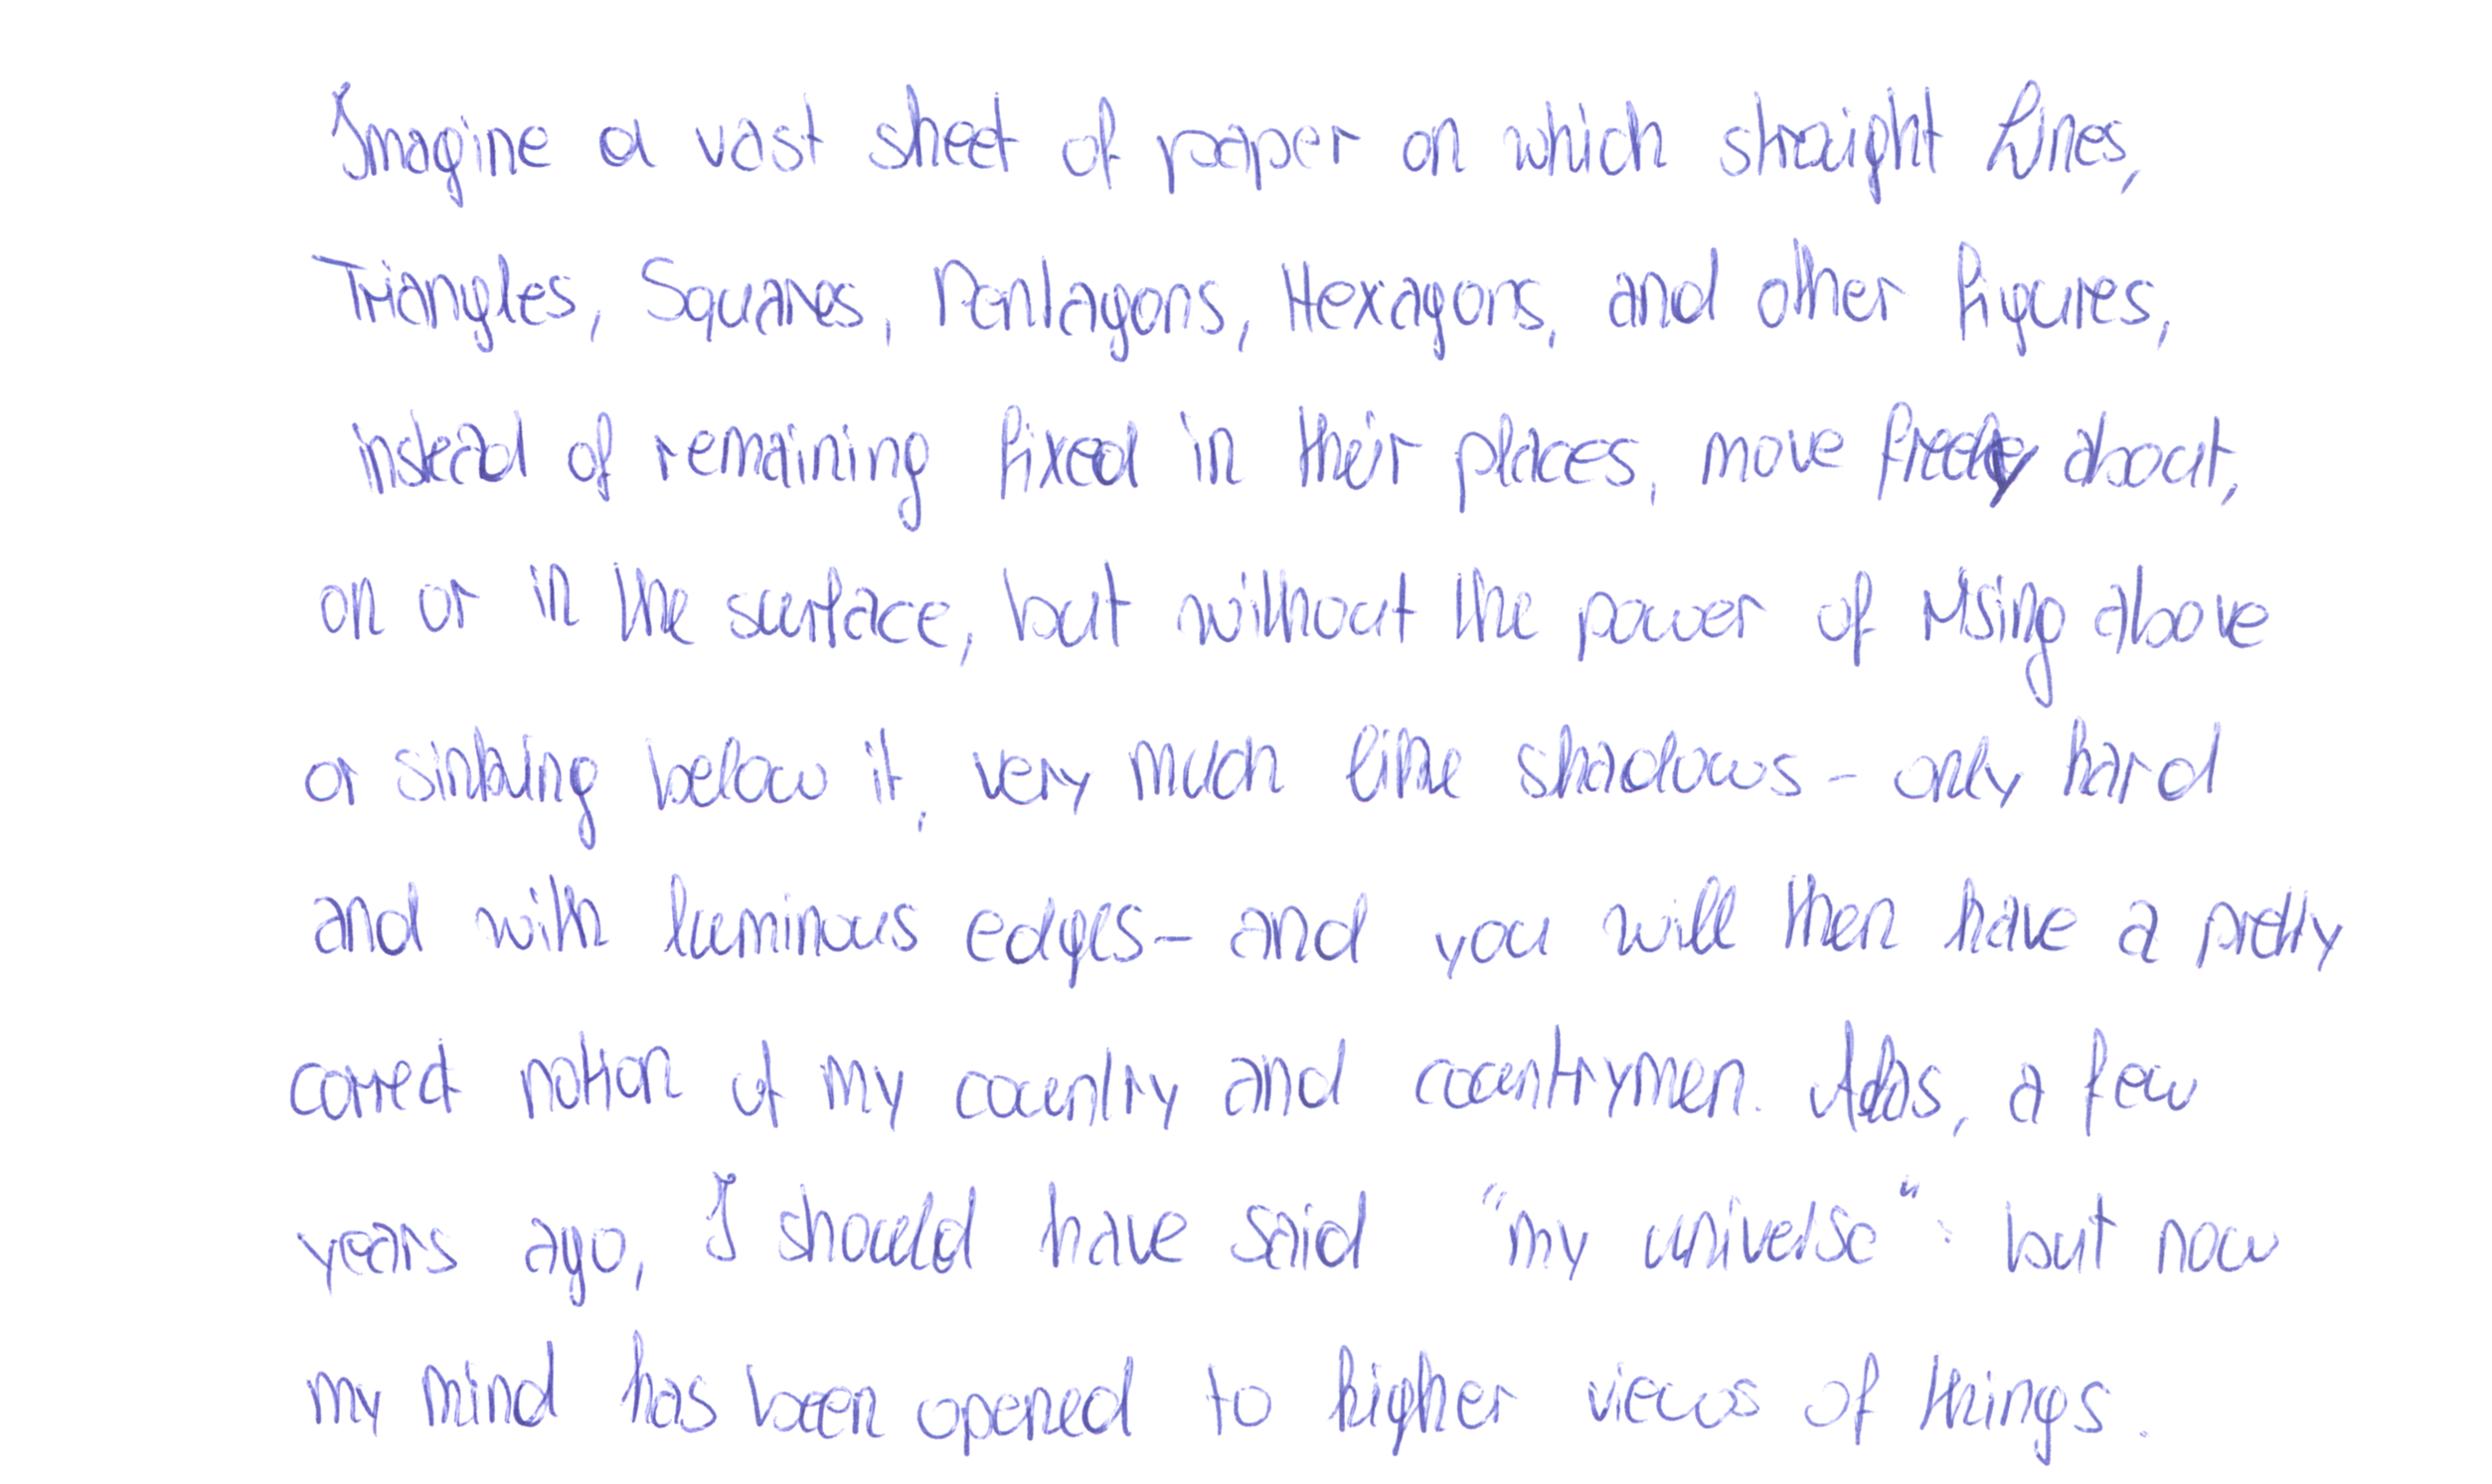 Imagine a vast sheet of paper on which straight Lines,
Triangles, Squares, Pentagons, Hexagons, and other figures,
instead of remaining fixed in their places, move freely about,
on or in the surface, but without the power of rising above
or sinking below it, very much like shadows - only hard
and with luminous edges - and you will then have a pretty
correct notion of my country and countrymen. Alas, a few
years ago, I should have said "my universe": but now
my mind has been opened to higher views of things.